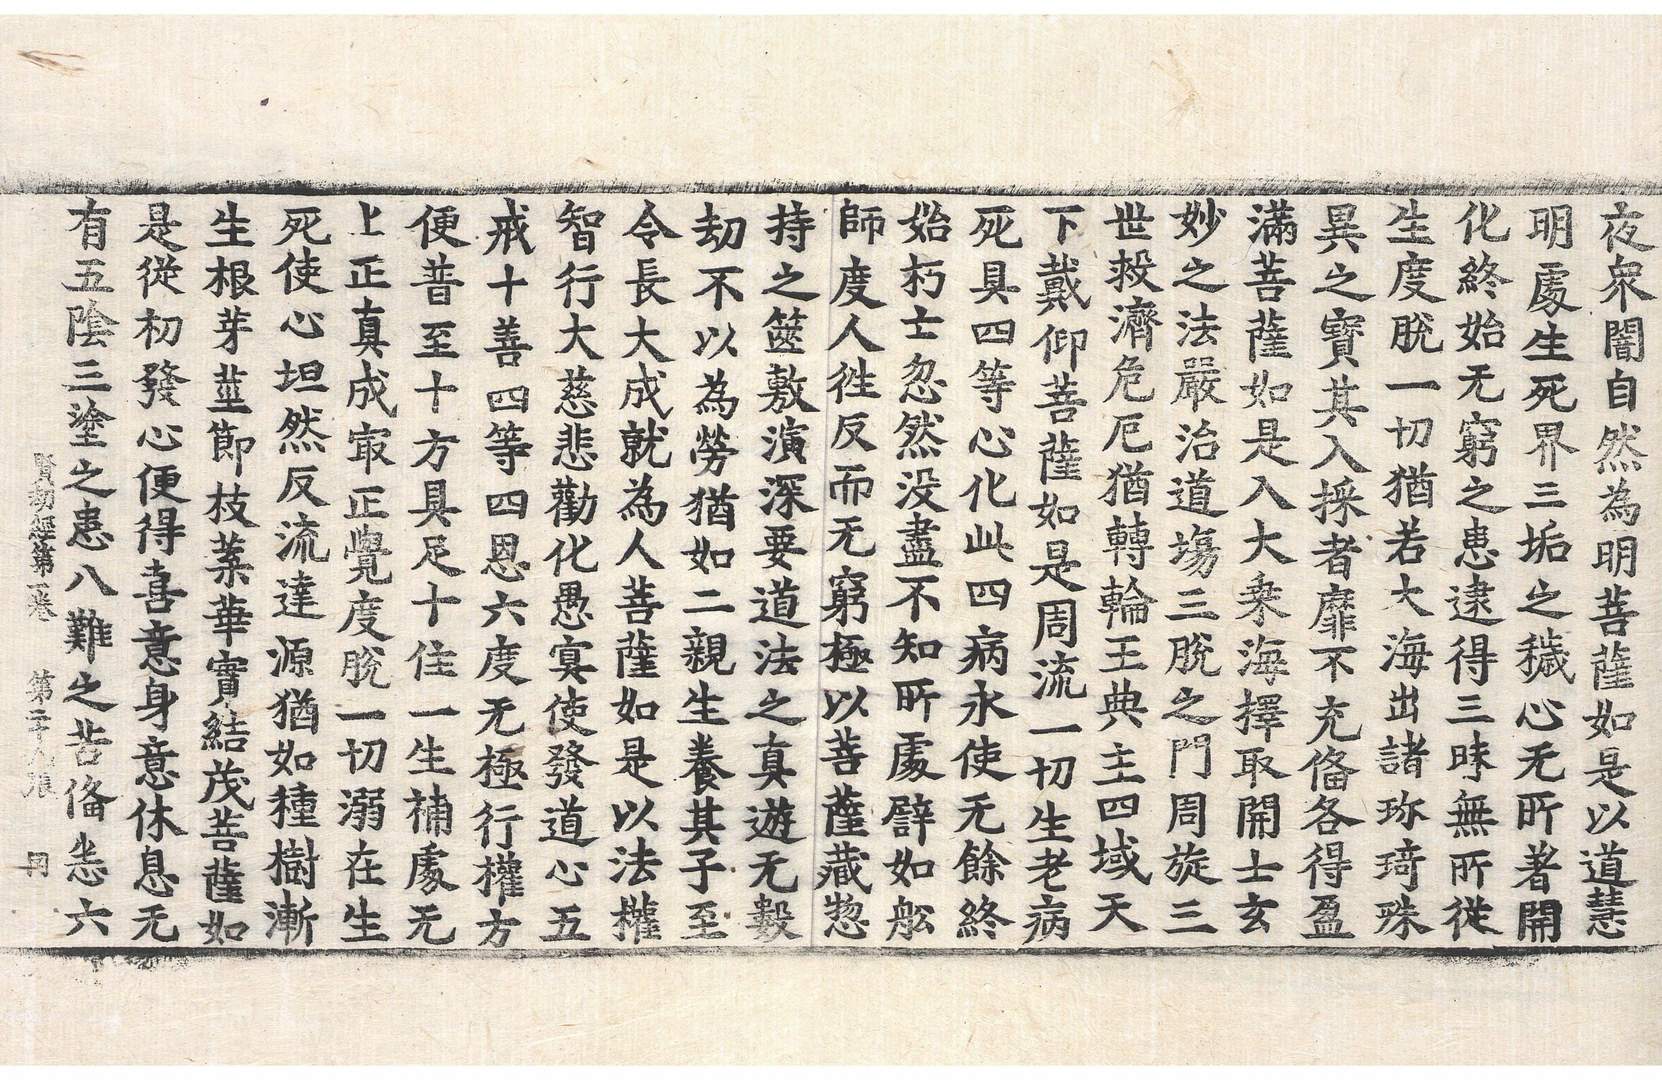 夜衆闇自然為明菩薩如是以道慧
明處生死界三垢之穢心无所著開
化終始无窮之患逮得三昧無所從
生度脫一切猶若大海出諸珎琦殊
異之寶其入採者靡不充俻各得盈
滿菩薩如是入大乗海擇取開士玄
妙之法嚴治道塲三脫之門周旋三
世救濟危厄猶轉輪王典主四域天
下戴仰菩薩如是周流一切生老病
死具四等心化此四病永使无餘終
始朽士忽然没盡不知所處譬如舩
師度人徃反而无窮極以菩薩藏惣
持之篋敷演深要道法之真遊无數
劫不以為勞猶如二親生養其子至
令長大成就為人菩薩如是以法權
智行大慈悲勸化愚冥使發道心五
戒十善四等四恩六度无極行權方
便普至十方具足十住一生補處无
上正真成㝡正覺度脫一切溺在生
死使心坦然反流達源猶如種樹漸
生根芽莖節枝葉華實結茂菩薩如
是從初發心便得喜意身意休息无
有五陰三塗之患八難之苦俻悉六
賢劫經第一卷　第二十八張　同